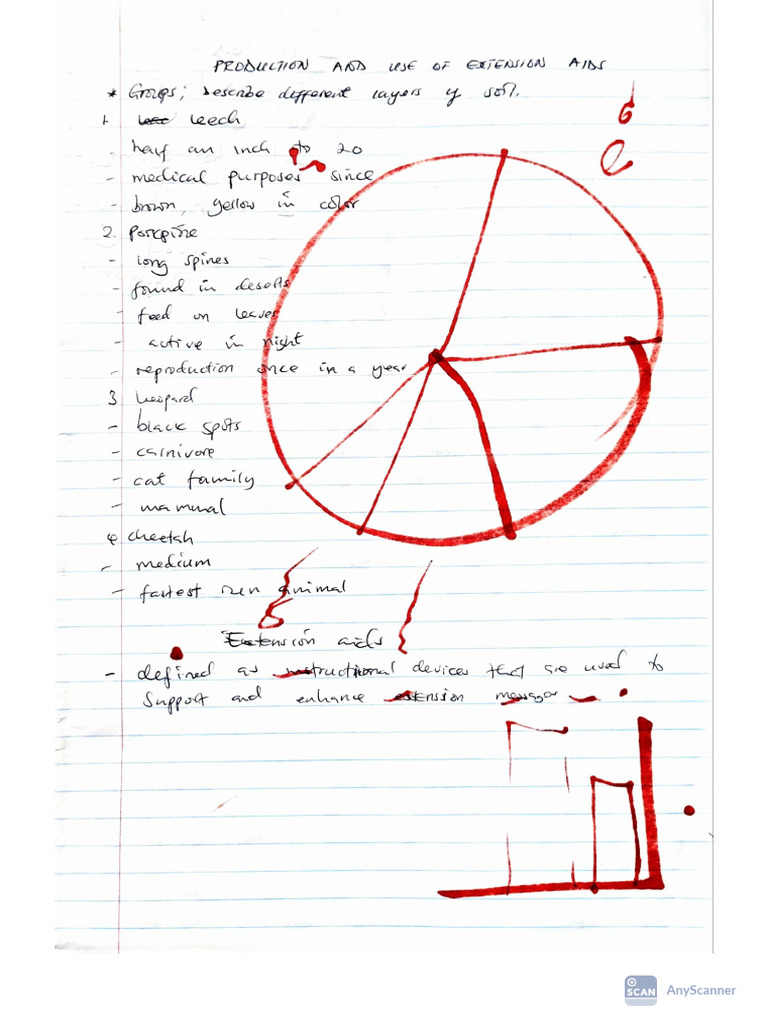 PRODUCTION AND USE OF EXTENSION AIDS
* Groups; Describe different layers of soil.
1. Leech
- half an inch to 20
- medical purposes since
- brown, yellow in color
2. Porcupine
- long spines
- found in deserts
- feed on leaves
- active in night
- reproduction once in a year
3 Leopard
- black spots
- carnivore
- cat family
- mammal
4 cheetah
- medium
- fastest run animal
Extension aids
- defined as instructional devices that are used to
Support and enhance extension message
6
SCAN AnyScanner